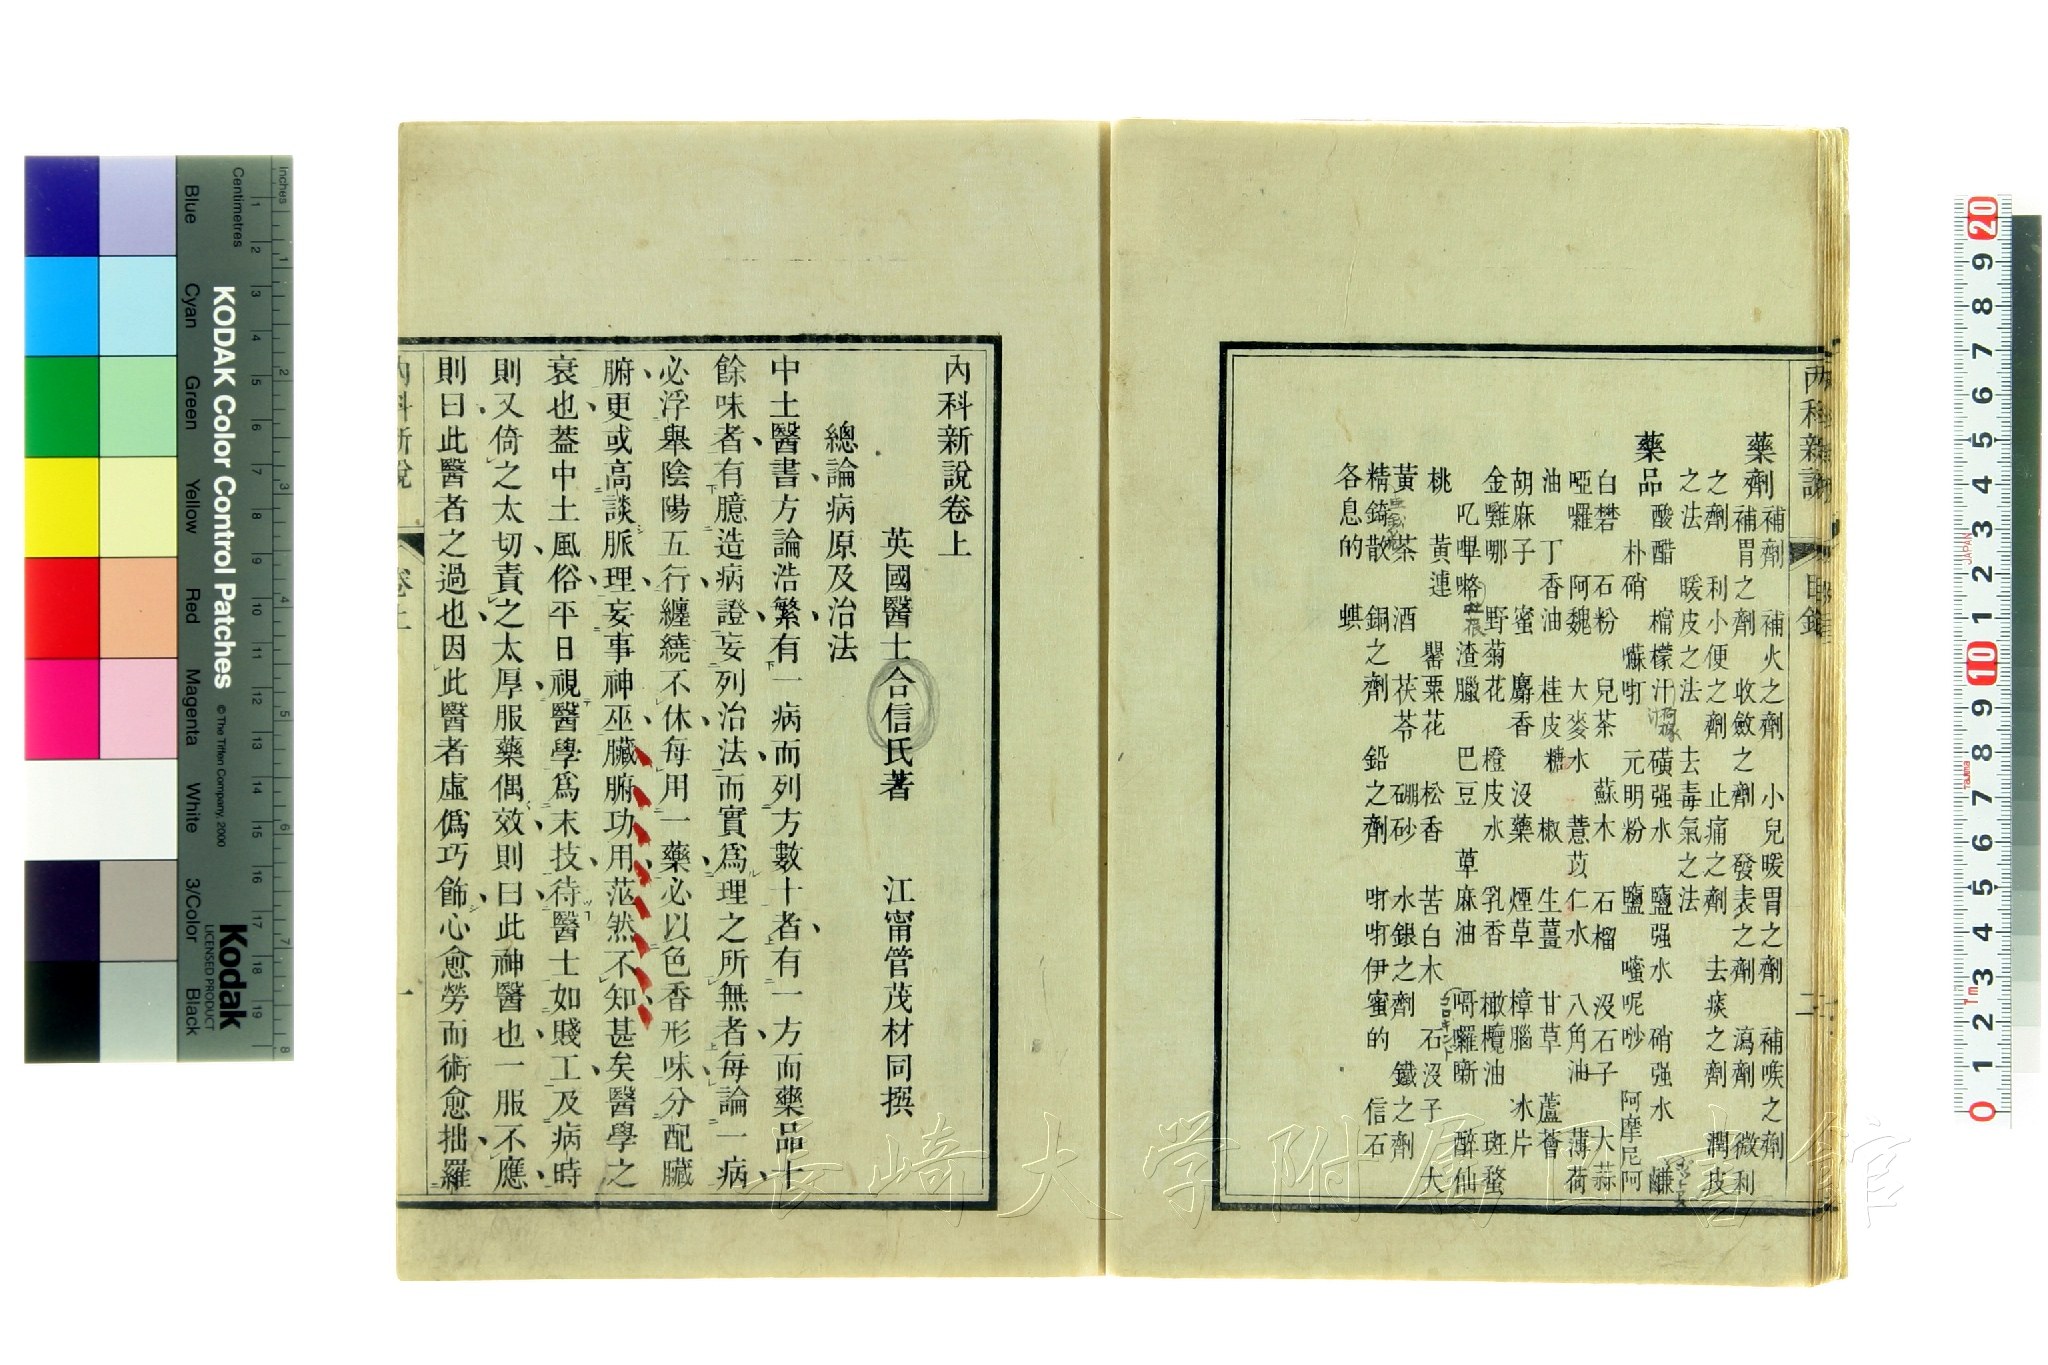 內科新說 目錄 二
藥劑 補劑 補火之劑 小兒暖胃之劑 補喉之劑
補胃之劑 收斂之劑 發表之劑 瀉劑 微利
之劑 利小便之劑 止痛之劑 去痰之劑 潤皮
之法 暖皮之法 去毒氣之法
藥品 酸醋 檸檬汁 磺强水 鹽强水 硝强水
朴硝 元明粉 鹽 呢吵 阿摩尼阿
白礬 石粉 兒茶 蘇木 石榴 沒石子 大蒜
啞囉 阿魏 大麥水 薏苡仁水 八角油 薄荷
油 丁香油 桂皮糖 椒 生薑 甘草 蘆薈
胡麻子 蜜 麝香 沒藥 煙草 樟腦 冰片
金雞哪 野菊花 橙皮水 乳香 橄欖油 斑蝥
嗶咯 渣臘 巴豆 萆麻油 醉仙
桃 黃連 罌粟花 松香 苦白木 石沒子 大
黃茶 酒 茯苓 硼砂 水銀之劑 鐵之劑
精錡散 銅之劑 鉛之劑 伊蜜的 信石
各息的 蜞
內科新說卷上
英國醫士合信氏著 江甯管茂材同撰
總論病原及治法
中土醫書方論浩繁有一病而列方數十者有一方而藥品十
餘味者有臆造病證妄列治法而實爲理之所無者每論一病
必浮舉陰陽五行纏繞不休每用一藥必以色香形味分配臟
腑更或高談脈理妄事神巫臟腑功用茫然不知甚矣醫學之
衰也蓋中土風俗平日視醫學爲末技待醫士如賤工及病時
則又倚之太切責之太厚服藥偶效則曰此神醫也一服不應
則曰此醫者之過也因此醫者虛僞巧飾心愈勞而術愈拙羅
內科新說 卷上 一
KODAK Color Control Patches
© The Tiffen Company, 2000
Kodak
LICENSED PRODUCT
Inches
Centimetres
Blue
Cyan
Green
Yellow
Red
Magenta
White
3/Color
Black
1 2 3 4 5 6 7 8 9 10 11 12 13 14 15 16 17 18 19
1 2 3 4 5 6 7 8
20 9 8 7 6 5 4 3 2 1 10 9 8 7 6 5 4 3 2 1 0
JAPAN
Tajima
Tm
長崎大学附属図書館